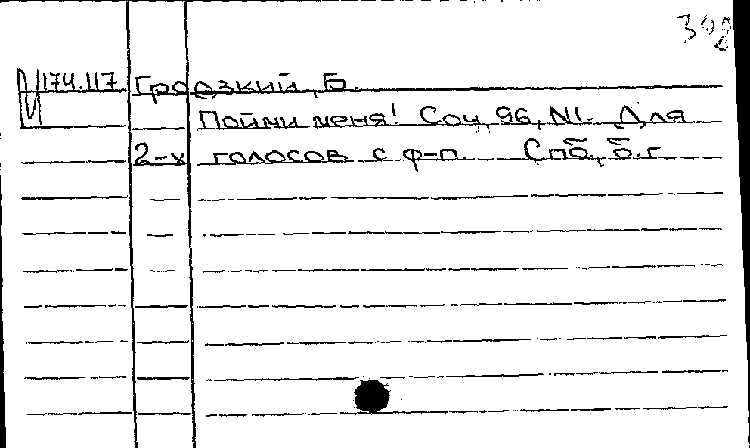 392
174.117 Гродзкий, Б.
Пойми меня! Соч. 96, N1. Для
2-х голосов с ф-п. Спб, б.г.